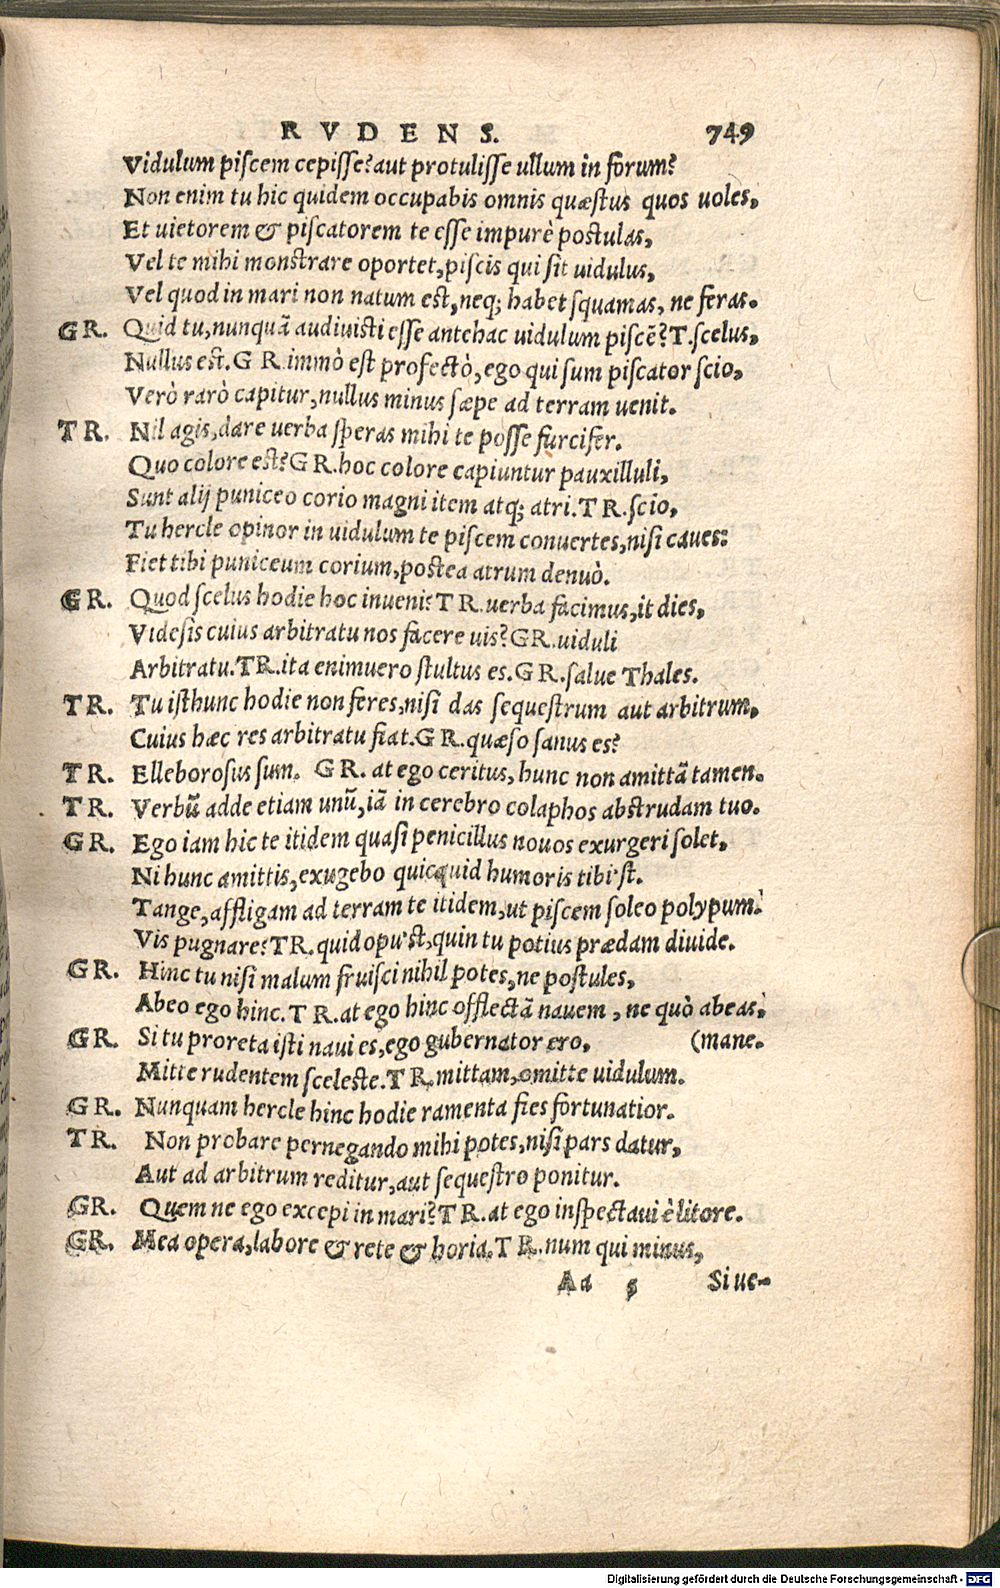 RVDENS. 749
Vidulum piscem cepisse? aut protulisse ullum in forum?
Non enim tu hic quidem occupabis omnis quæstus quos uoles,
Et uietorem & piscatorem te esse impurè postulas,
Vel te mihi monstrare oportet, piscis qui sit uidulus,
Vel quod in mari non natum est, neq; habet squamas, ne feras.
GR. Quid tu, nunquā audiuisti esse antehac uidulum piscē? T. scelus,
Nullus est. GR. immò est profectò, ego qui sum piscator scio,
Verò rarò capitur, nullus minus sæpe ad terram uenit.
TR. Nil agis, dare uerba speras mihi te posse furcifer.
Quo colore est? GR. hoc colore capiuntur pauxilluli,
Sunt alij puniceo corio magni item atq; atri. TR. scio,
Tu hercle opinor in uidulum te piscem conuertes, nisi caues:
Fiet tibi puniceum corium, postea atrum denuò.
GR. Quod scelus hodie hoc inueni? TR. uerba facimus, it dies,
Videsis cuius arbitratu nos facere uis? GR. uiduli
Arbitratu. TR. ita enimuero stultus es. GR. salue Thales.
TR. Tu isthunc hodie non feres, nisi das sequestrum aut arbitrum,
Cuius hæc res arbitratu fiat. GR. quæso sanus es?
TR. Elleborosus sum. GR. at ego ceritus, hunc non amittā tamen.
TR. Verbū adde etiam unū, iā in cerebro colaphos abstrudam tuo.
GR. Ego iam hic te itidem quasi penicillus nouos exurgeri solet,
Ni hunc amittis, exugebo quicquid humoris tibi'st.
Tange, affligam ad terram te itidem, ut piscem soleo polypum.
Vis pugnare? TR. quid opu'st, quin tu potius prædam diuide.
GR. Hinc tu nisi malum fruisci nihil potes, ne postules,
Abeo ego hinc. TR. at ego hinc offlectā nauem, ne quò abeas,
GR. Si tu proreta isti naui es, ego gubernator ero, (mane.
Mitte rudentem sceleste. TR. mittam, omitte uidulum.
GR. Nunquam hercle hinc hodie ramenta fies fortunatior.
TR. Non probare pernegando mihi potes, nisi pars datur,
Aut ad arbitrum reditur, aut sequestro ponitur.
GR. Quem ne ego excepi in mari? TR. at ego inspectaui è litore.
GR. Mea opera, labore & rete & horia. TR. num qui minus,
Aa 5 Si ue-
Digitalisierung gefördert durch die Deutsche Forschungsgemeinschaft - DFG